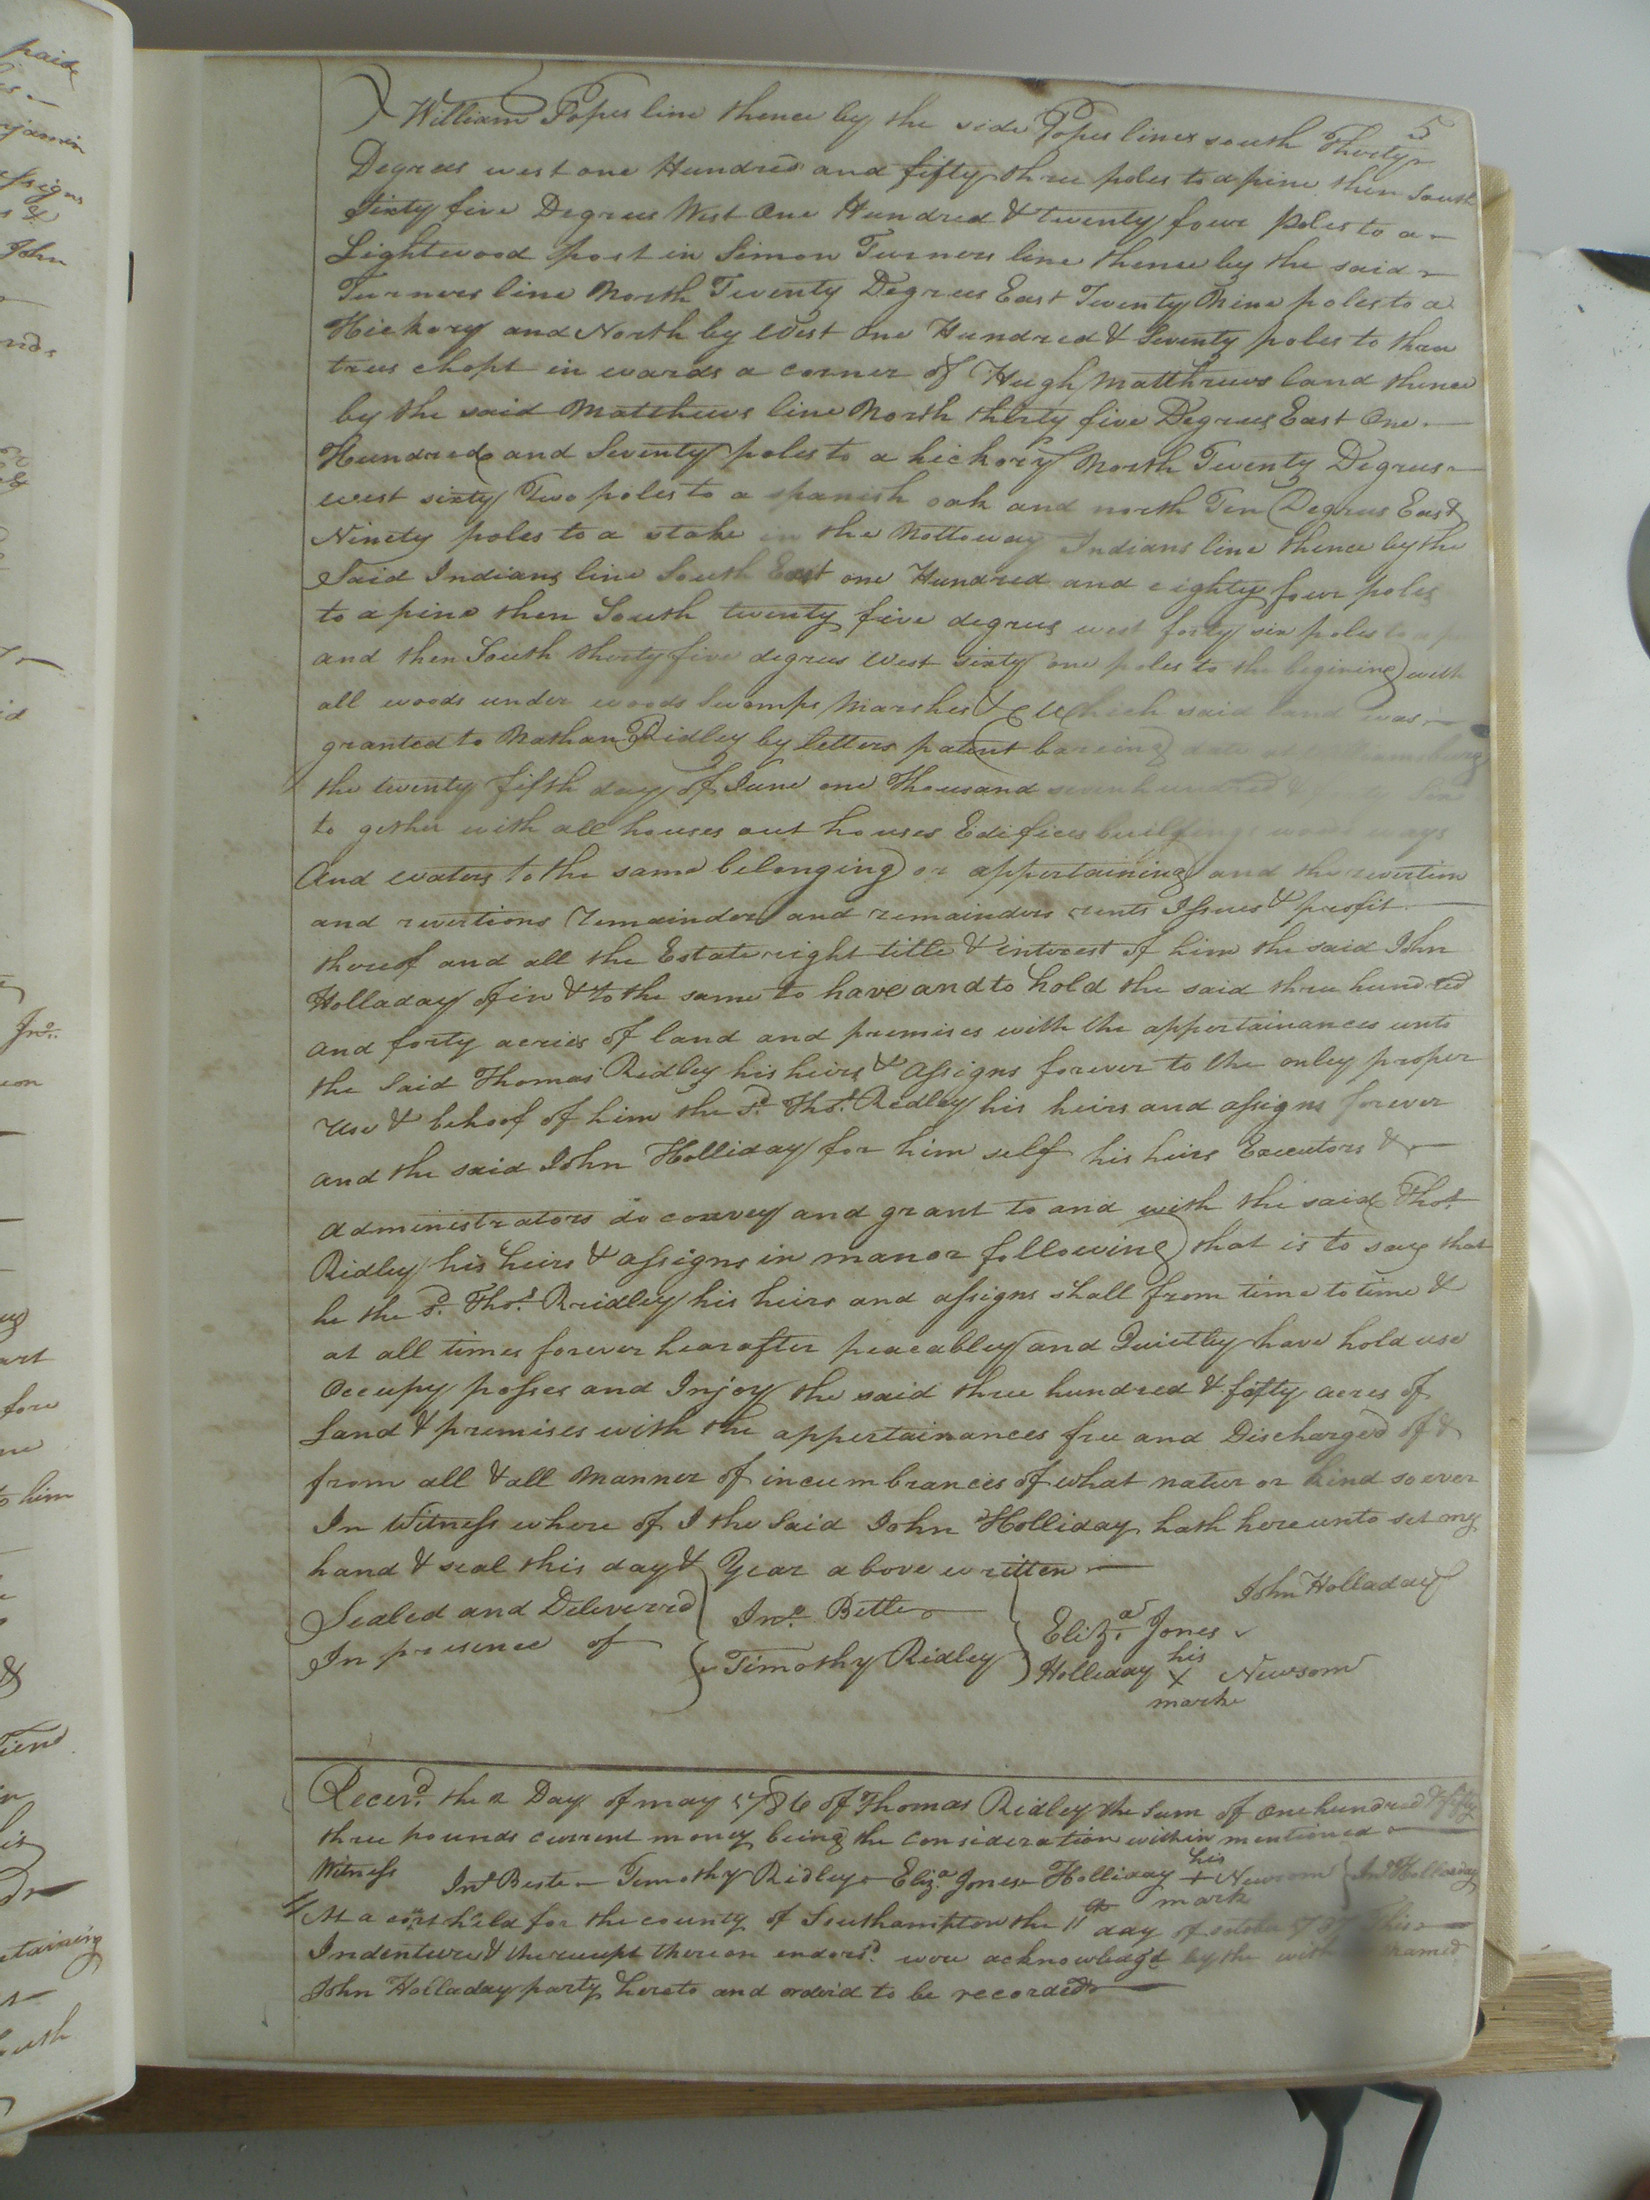 5
William Popes line thence by the side Popes lines south Thirty
Degrees west one Hundred and fifty three poles to a pine then South
Sixty five Degrees West One Hundred & twenty four poles to a
Lightwood post in Simon Turners line thence by the said
Turners line North Twenty Degrees East Twenty Nine poles to a
Hickory and North by West one Hundred & Seventy poles to three
trees chopt in wards a corner of Hugh Matthews land thence
by the said Matthews line North thirty five Degrees East One
Hundred and Seventy poles to a hickory North Twenty Degrees
west sixty Two poles to a spanish oak and north Ten Degrees East
Ninety poles to a stake in the Nottoway Indians line thence by the
Said Indians line South East one Hundred and eighty four poles
to a pine then South twenty five degrees west forty six poles to a
and then South thirty five degrees West sixty one poles to the begining with
all woods under woods Swamps Marshes &c which said land was
granted to Nathan Ridley by letters patent bareing date at
the twenty fifth day of June one Thousand seven hundred &
to gether with all houses out houses Edifices buildings ways
And waters to the same belonging or appertaining and the revertion
and revertions remainder and remainders rents Issues & profit
thereof and all the Estate right title & interest of him the said John
Holladay of in & to the same to have and to hold the said three hundred
and forty acries of land and premises with the appertainances unto
the Said Thomas Ridley his heirs & assigns forever to the onley proper
Use & behoof of him the sd. Thos. Redley his heirs and assigns forever
and the said John Holliday for him self his heirs Executors &
administrators do convey and grant to and with the said Thos.
Ridley his heirs & assigns in manor following that is to say that
he the sd. Thos. Rridley his heirs and assigns shall from time to time &
at all times forever hearafter peaceabley and Quietley have hold use
Occupy posses and Injoy the said three hundred & fofty acres of
Land & premises with the appertainances free and Discharged of &
from all & all Manner of incumbrances of what natur or kind so ever
In Witness where of I the Said John Holliday hath here unto set my
hand & seal this day & Year above written
John Holladay
Sealed and Delivered Jno. Bette Eliza. Jones
In presence of Timothy Ridley Holleday his X mark Newsom
Receivd. the 2 Day of may 1786 of Thomas Ridley the Sum of One hundred & fifty
three pounds current money being the Consideration within mentioned
Witness Jno Beste Timothy Ridley Eliza. Jones Holliday his + mark Newsom Jno Holladay
At a cort held for the county of Southampton the 11th day of This
Indenture & the receipt thereon endorsd. wore acknowledgd by the with named
John Holladay party hereto and orderd to be recorded